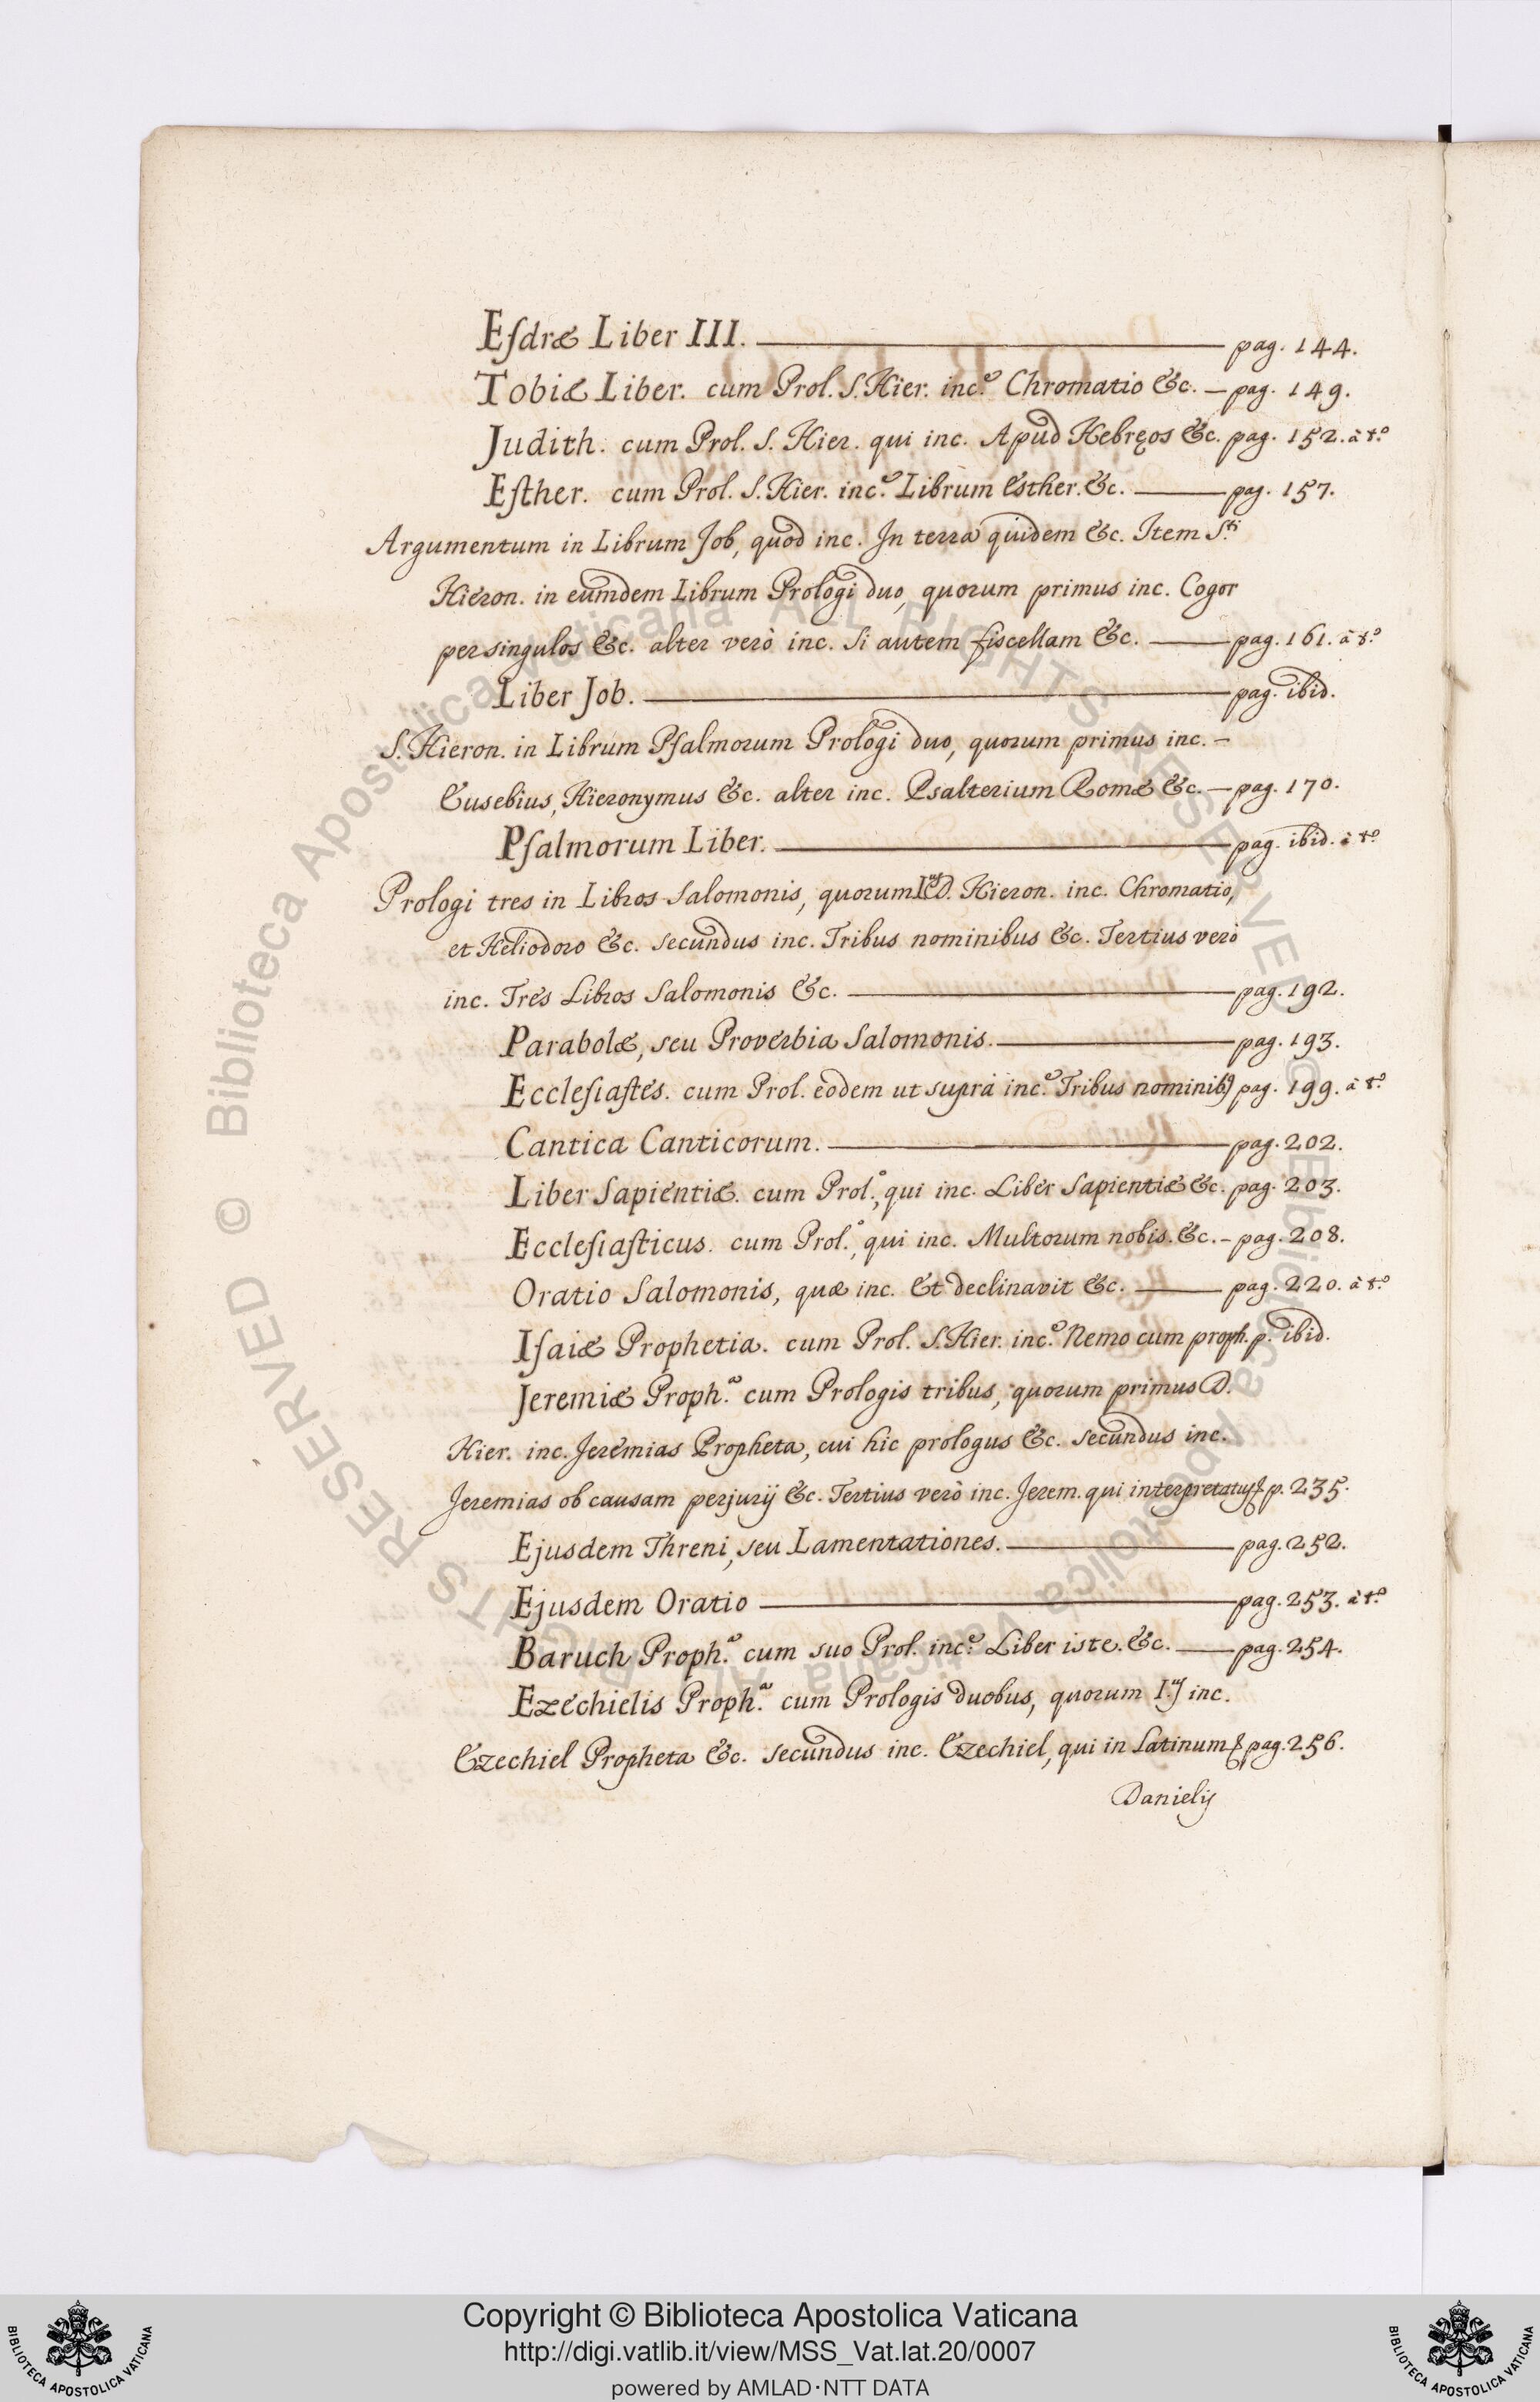 Esdræ Liber III. pag. 144.
Tobiæ Liber. cum Prol. S. Hier. inc.e Chromatio &c. – pag. 149.
Judith. cum Prol. S. Hier. qui inc. Apud Hebręos &c. pag. 152. à t.o
Esther. cum Prol. S. Hier. inc.e Librum Esther. &c. pag. 157.
Argumentum in Librum Job, quod inc. In terra quidem &c. Item S.ti
Hieron. in eumdem Librum Prologi duo, quorum primus inc. Cogor
per singulos &c. alter verò inc. Si autem fiscellam &c. pag. 161. à t.o
Liber Job. pag. ibid.
S. Hieron. in Librum Psalmorum Prologi duo, quorum primus inc. –
Eusebius, Hieronymus &c. alter inc. Psalterium Romæ &c. – pag. 170.
Psalmorum Liber. pag. ibid. à t.o
Prologi tres in Libros Salomonis, quorum I.us D. Hieron. inc. Chromatio,
et Heliodoro &c. secundus inc. Tribus nominibus &c. Tertius verò
inc. Tres Libros Salomonis &c. pag. 192.
Parabolæ, seu Proverbia Salomonis. pag. 193.
Ecclesiastes. cum Prol. eodem ut suprà inc.e Tribus nominib9 pag. 199. à t.o
Cantica Canticorum. pag. 202.
Liber Sapientiæ. cum Prol.o, qui inc. Liber Sapientiæ &c. pag. 203.
Ecclesiasticus. cum Prol.o, qui inc. Multorum nobis. &c. – pag. 208.
Oratio Salomonis, quæ inc. Et declinavit &c. pag. 220. à t.o
Isaiæ Prophetia. cum Prol. S. Hier. inc.e Nemo cum proph. p. ibid.
Jeremiæ Proph.a cum Prologis tribus, quorum primus D.
Hier. inc. Jeremias Propheta, cui hic prologus &c. secundus inc.
Jeremias ob causam perjurij &c. Tertius verò inc. Jerem. qui interpretatur p. 235.
Ejusdem Threni, seu Lamentationes. pag. 252.
Ejusdem Oratio pag. 253. à t.o
Baruch Proph.a cum suo Prol. inc.e Liber iste. &c. pag. 254.
Ezechielis Proph.a cum Prologis duobus, quorum I.us inc.
Ezechiel Propheta &c. secundus inc. Ezechiel, qui in Latinum & pag. 256.
Danielis
Copyright © Biblioteca Apostolica Vaticana
http://digi.vatlib.it/view/MSS_Vat.lat.20/0007
powered by AMLAD·NTT DATA
BIBLIOTECA APOSTOLICA VATICANA
BIBLIOTECA APOSTOLICA VATICANA